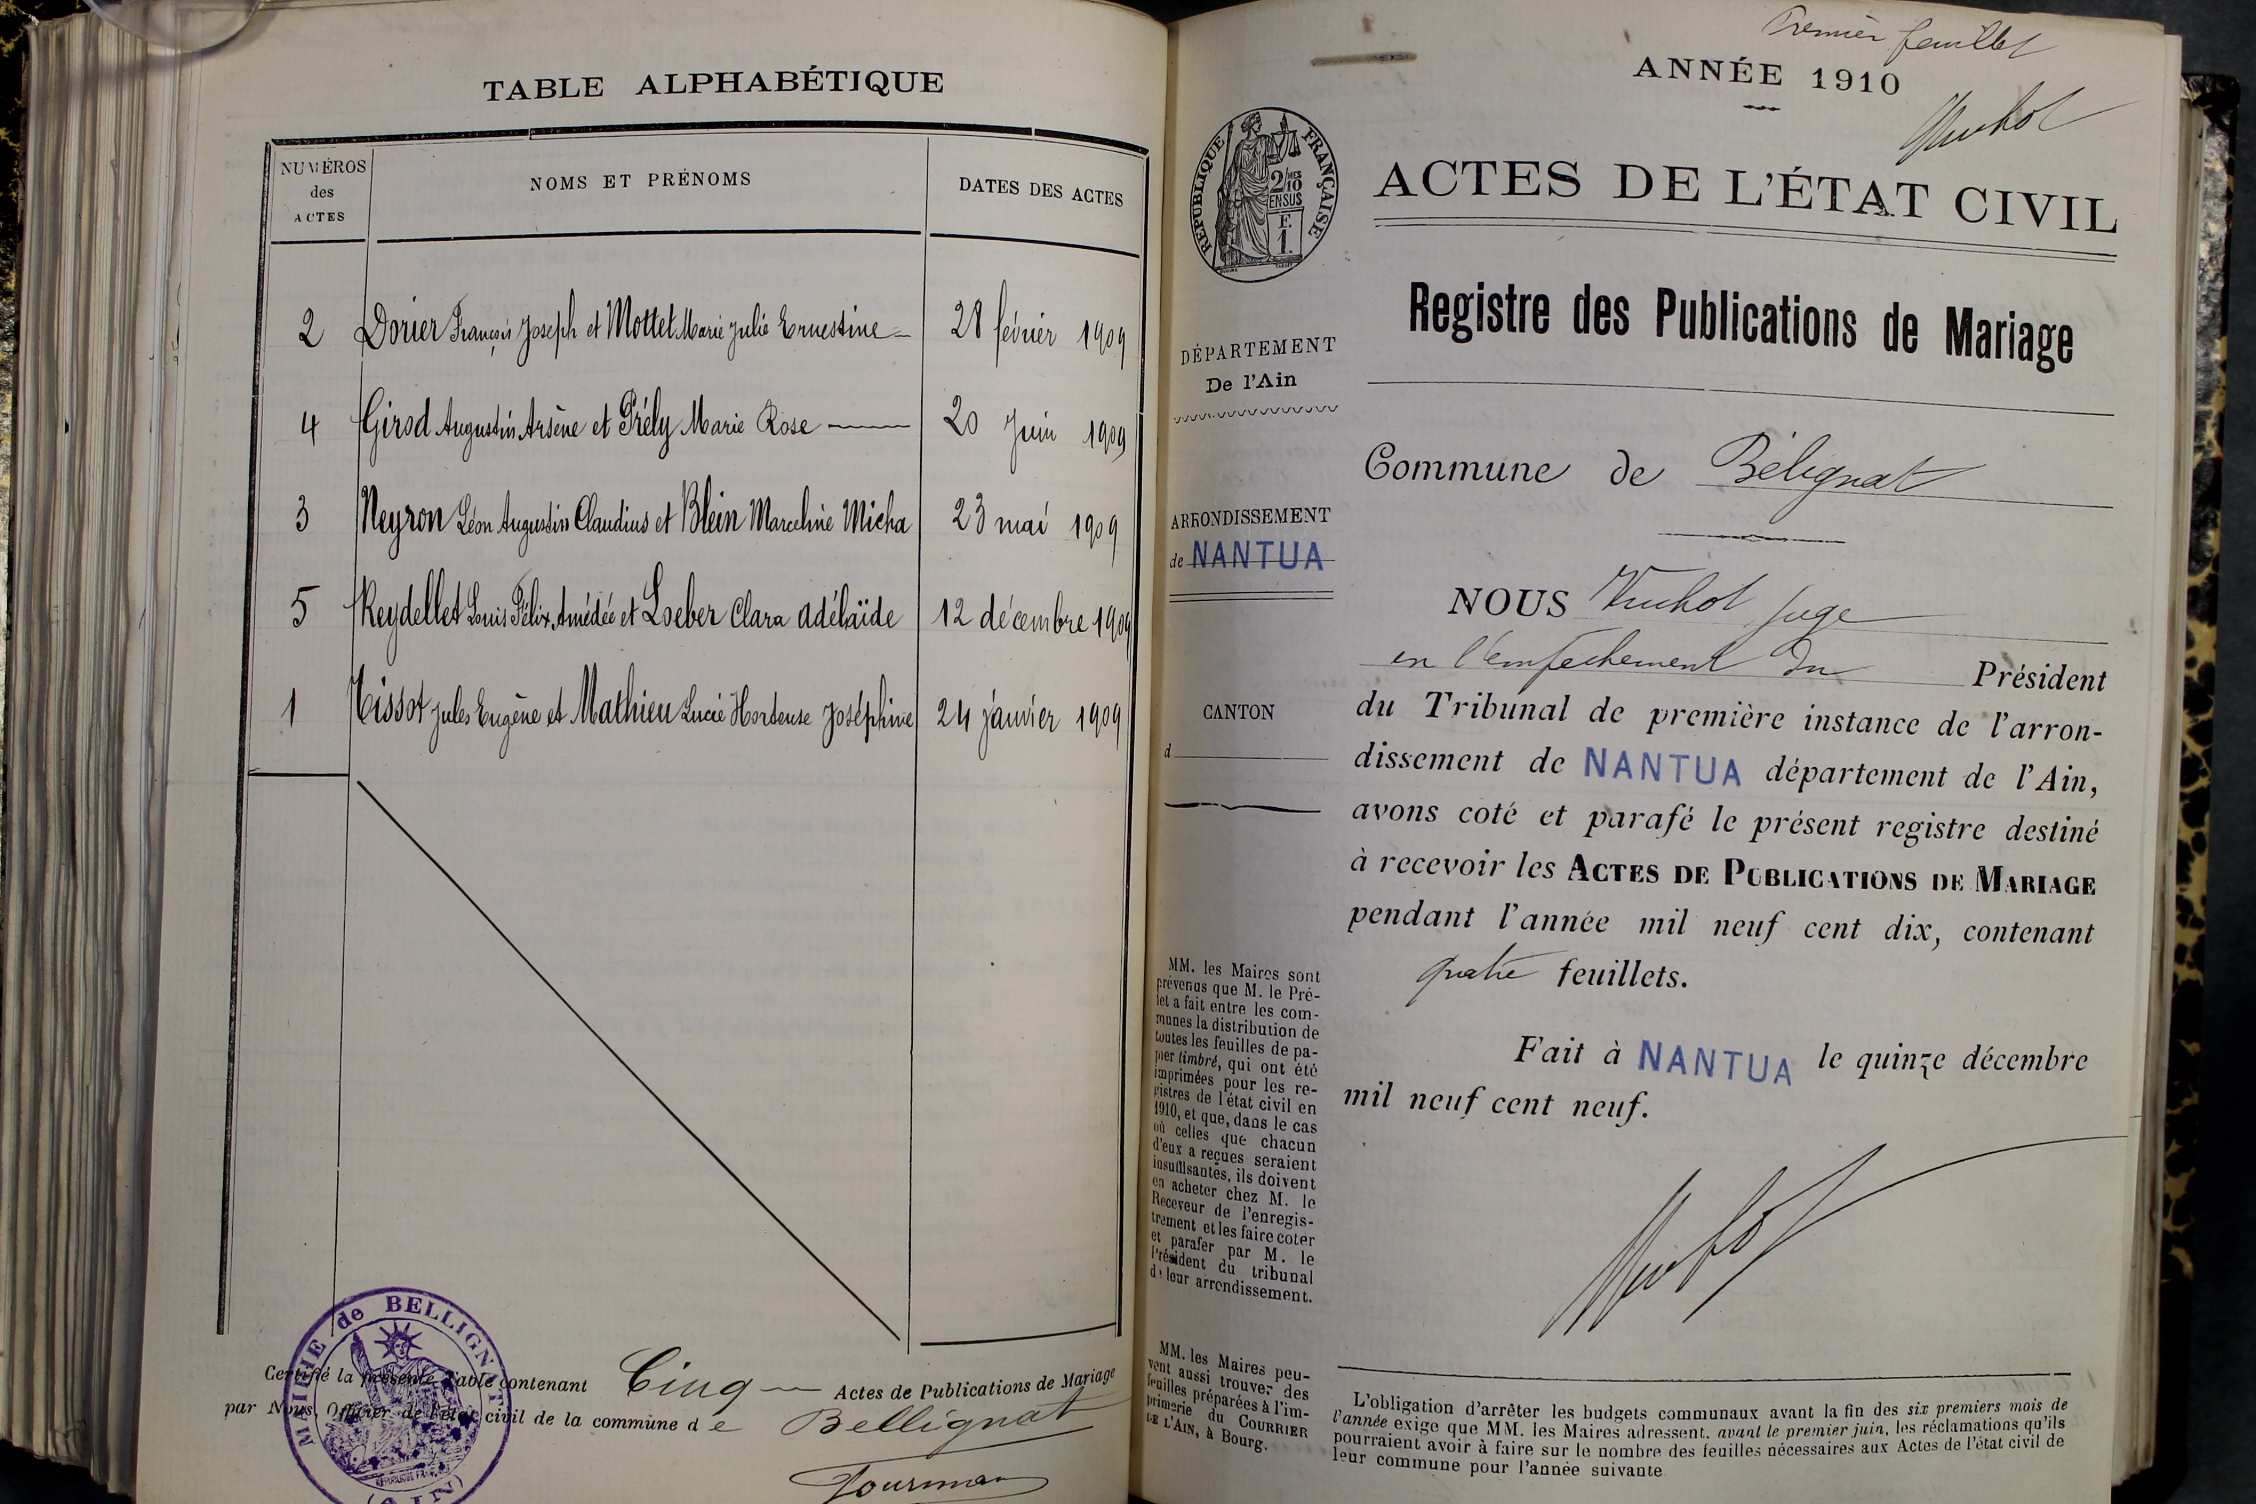 TABLE ALPHABÉTIQUE
NUMÉROS
des
ACTES
NOMS ET PRÉNOMS
DATES DES ACTES
2 Dorier François Joseph et Mottet Marie Julie Ernestine 28 février 1909
4 Girod Augustin Arsène et Prély Marie Rose 20 Juin 1909
3 Neyron Léon Augustin Claudius et Blein Marceline Micha 23 mai 1909
5 Reydellet Louis Félix Amédée et Loeber Clara Adélaïde 12 décembre 1909
1 Tissot Jules Eugène et Mathieu Lucie Hortense Joséphine 24 janvier 1909
Certifié la présente Table contenant Cinq Actes de Publications de Mariage
par Nous, Officier de l'état civil de la commune de Bellignat
MAIRIE de BELLIGNAT
RÉPUBLIQUE FRANÇAISE
(AIN)
Premier feuillet
ANNÉE 1910
RÉPUBLIQUE FRANÇAISE
2/10
MES
EN SUS
F.
1.
ACTES DE L'ÉTAT CIVIL
Registre des Publications de Mariage
DÉPARTEMENT
De l'Ain
Commune de Bélignat
ARRONDISSEMENT
de NANTUA
CANTON
d
NOUS Vuchot Juge
en l'empechement du Président
du Tribunal de première instance de l'arron-
dissement de NANTUA département de l'Ain,
avons coté et parafé le présent registre destiné
à recevoir les ACTES DE PUBLICATIONS DE MARIAGE
pendant l'année mil neuf cent dix, contenant
quatre feuillets.
Fait à NANTUA le quinze décembre
mil neuf cent neuf.
MM. les Maires sont
prévenus que M. le Pré-
fet a fait entre les com-
munes la distribution de
toutes les feuilles de pa-
pier timbré, qui ont été
imprimées pour les re-
gistres de l'état civil en
1910, et que, dans le cas
où celles que chacun
d'eux a reçues seraient
insuffisantes, ils doivent
en acheter chez M. le
Receveur de l'enregis-
trement et les faire coter
et parafer par M. le
Président du tribunal
de leur arrondissement.
MM. les Maires peu-
vent aussi trouver des
feuilles préparées à l'im-
primerie du COURRIER
DE L'AIN, à Bourg.
L'obligation d'arrêter les budgets communaux avant la fin des six premiers mois de
l'année exige que MM. les Maires adressent, avant le premier juin, les réclamations qu'ils
pourraient avoir à faire sur le nombre des feuilles nécessaires aux Actes de l'état civil de
leur commune pour l'année suivante